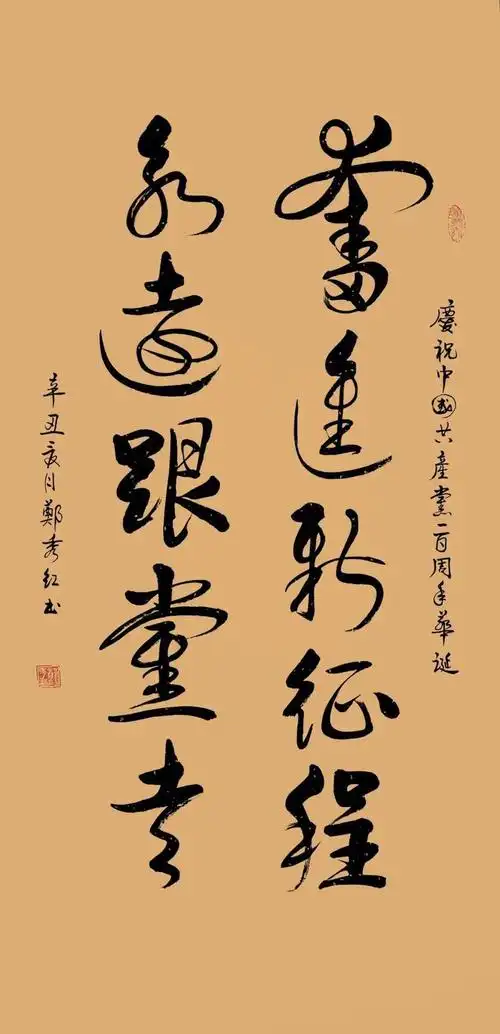 慶祝中國共產黨一百周年華誕
奮進新征程
永遠跟黨走
辛丑夏月鄭秀紅书